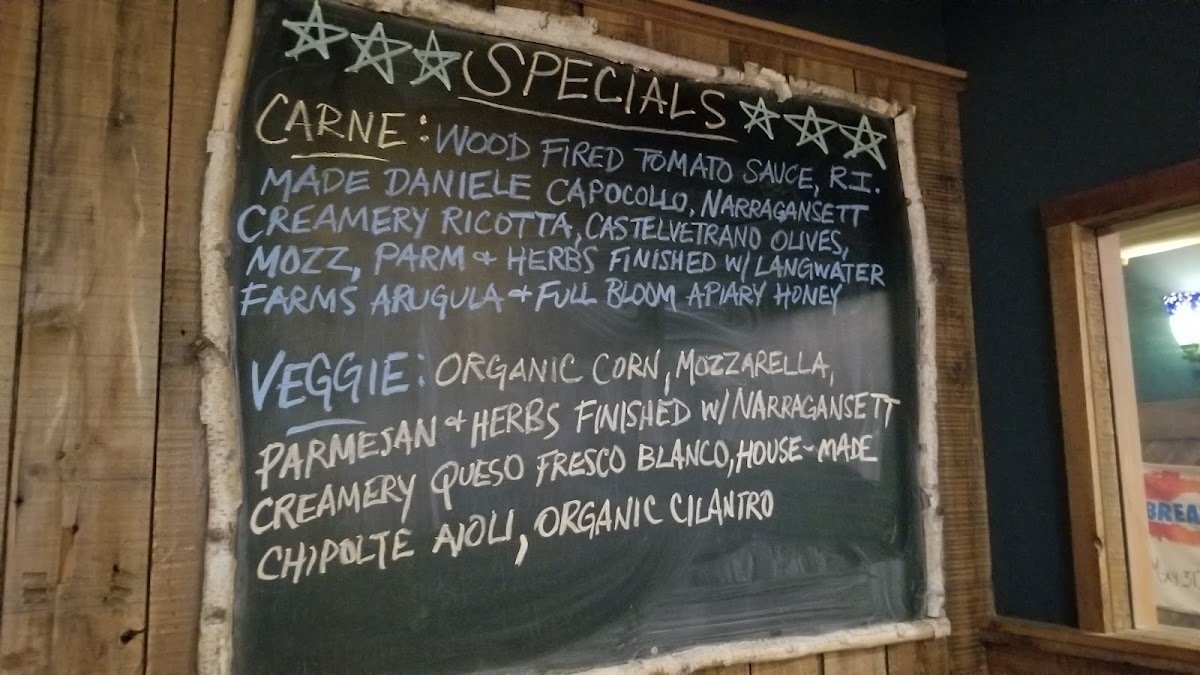 SPECIALS
CARNE: WOOD FIRED TOMATO SAUCE, R.I.
MADE DANIELE CAPOCOLLO, NARRAGANSETT
CREAMERY RICOTTA, CASTELVETRANO OLIVES,
MOZZ, PARM & HERBS FINISHED W/ LANGWATER
FARMS ARUGULA & FULL BLOOM APIARY HONEY
VEGGIE: ORGANIC CORN, MOZZARELLA,
PARMESAN & HERBS FINISHED W/ NARRAGANSETT
CREAMERY QUESO FRESCO BLANCO, HOUSE-MADE
CHIPOLTE AIOLI, ORGANIC CILANTRO